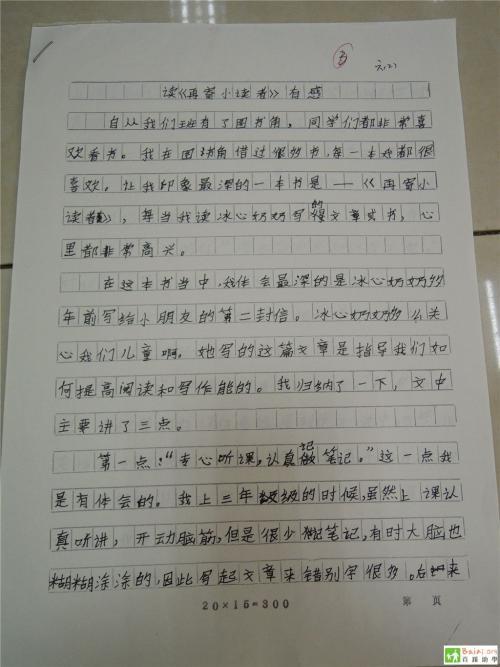 3
六(2)
读《再寄小读者》有感
自从我们班有了图书角，同学们都非常喜
欢看书。我在图书角借过很多书，每一本我都很
喜欢。让我印象最深的一本书是——《再寄小
读者》，每当我读冰心奶奶写的文章或书，心
里都非常高兴。
在这本书当中，我体会最深的是冰心奶奶多
年前写给小朋友的第二封信。冰心奶奶多么关
心我们儿童啊，她写的这篇文章是指导我们如
何提高阅读和写作能的。我归纳了一下，文中
主要讲了三点。
第一点：“专心听课，认真做笔记。”这一点我
是有体会的。我上三年级的时候，虽然上课认
真听讲，开动脑筋，但是很少做笔记，有时大脑也
糊糊涂涂的，因此写起文章来错别字很多。后来
20×15=300
第 页
Baixi.org
百蹊治学